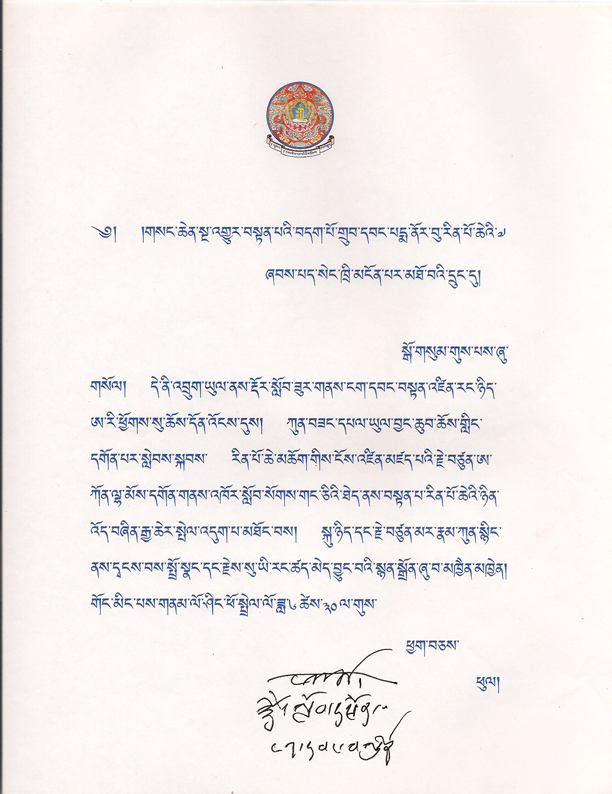 ༄༅། །གསང་ཆེན་སྔ་འགྱུར་བསྟན་པའི་བདག་པོ་གྲུབ་དབང་པདྨ་ནོར་བུ་རིན་པོ་ཆེའི་༧
ཞབས་པད་སེང་ཁྲི་མངོན་པར་མཐོ་བའི་དྲུང་དུ།
སྒོ་གསུམ་གུས་པས་ཞུ་
གསོལ། དེ་ནི་འབྲུག་ཡུལ་ནས་རྡོར་སློབ་ཟུར་གནས་ངག་དབང་བསྟན་འཛིན་རང་ཉིད་
ཨ་རི་ཕྱོགས་སུ་ཆོས་དོན་འོངས་དུས། ཀུན་བཟང་དཔལ་ཡུལ་བྱང་ཆུབ་ཆོས་གླིང་
དགོན་པར་སླེབས་སྐབས་ རིན་པོ་ཆེ་མཆོག་གིས་ངོས་འཛིན་མཛད་པའི་རྗེ་བཙུན་ཨ་
ཀོན་ལྷ་མོས་དགོན་གནས་འཁོར་སློབ་སོགས་གང་ཅིའི་ཐད་ནས་བསྟན་པ་རིན་པོ་ཆེའི་ཉིན་
འོད་བཞིན་རྒྱ་ཆེར་སྤེལ་འདུག་པ་མཐོང་བས། སྐུ་ཉིད་དང་རྗེ་བཙུན་མར་རྣམ་ཀུན་སྙིང་
ནས་དྭངས་བས་སྤྲོ་སྣང་དང་རྗེས་སུ་ཡི་རང་ཚད་མེད་བྱུང་བའི་སྙན་སྒྲོན་ཞུ་བ་མཁྱེན་མཁྱེན།
གོང་མིང་པས་གནམ་ལོ་ཤིང་ཕོ་སྤྲེལ་ལོ་ཟླ་༦་ཚེས་༣༠་ལ་གུས་
ཕྱག་བཅས་
ཕུལ།